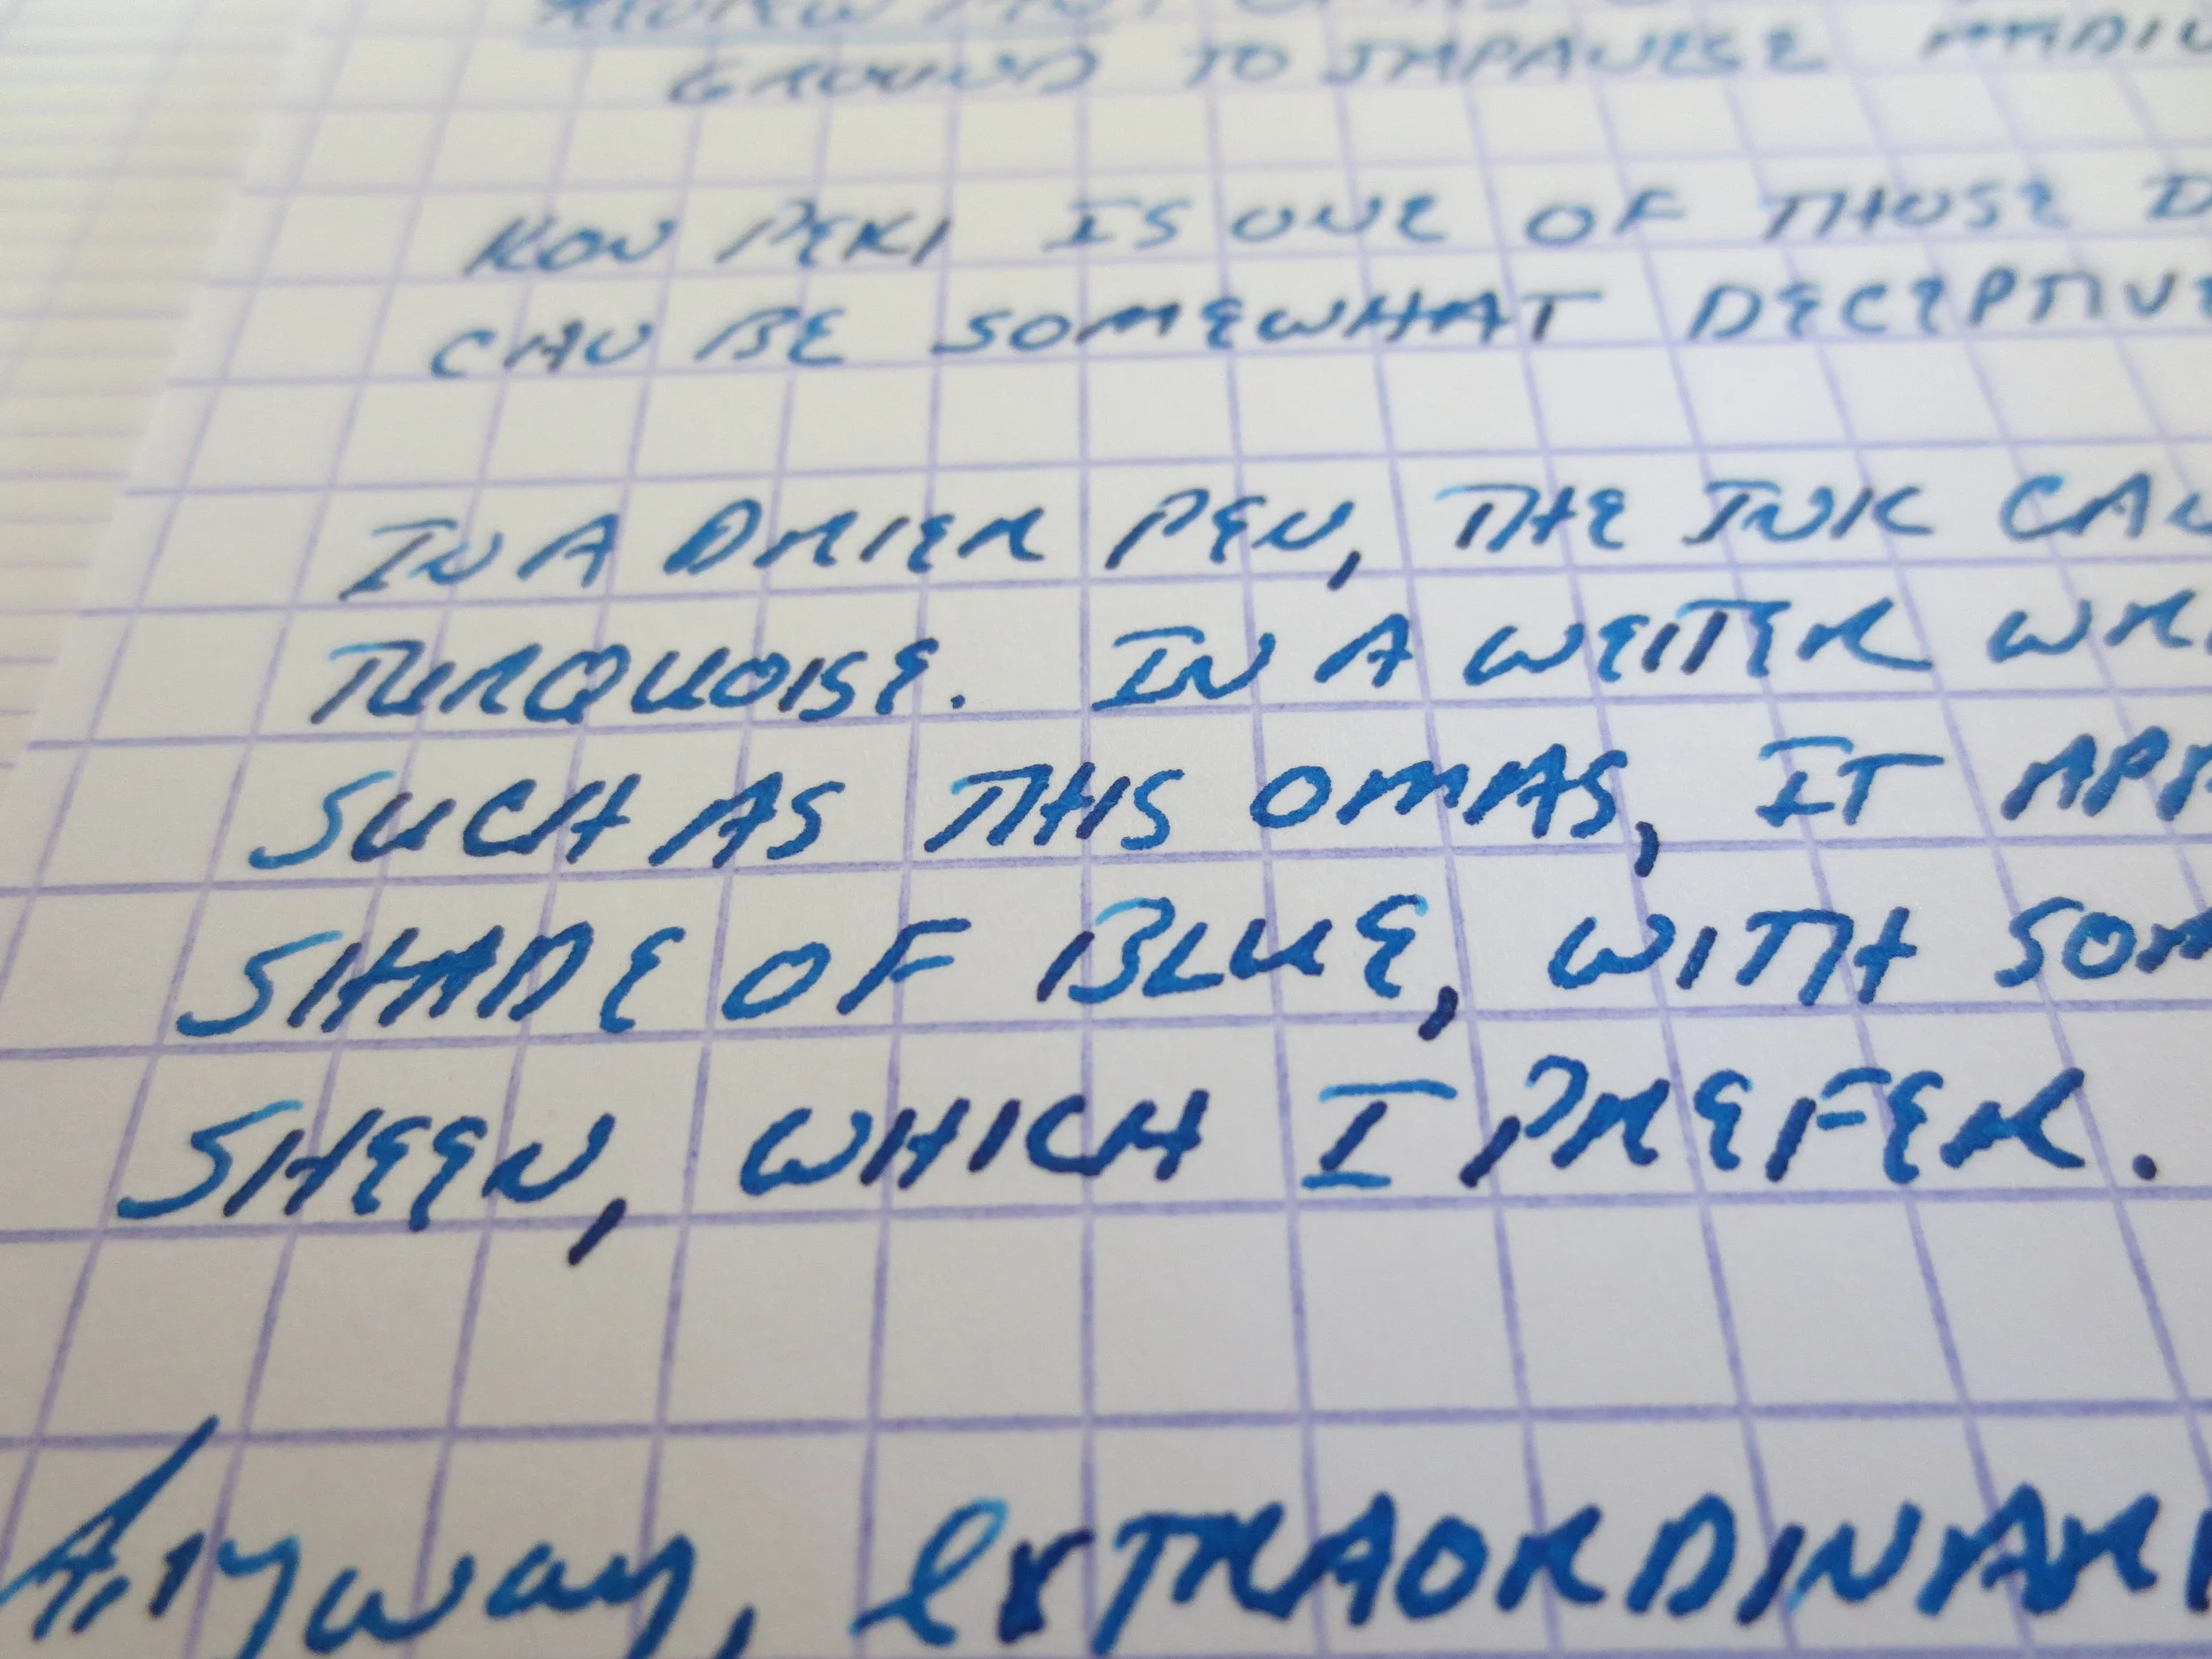 GROUND TO JAPANESE
KON PEKI IS ONE OF THOSE
CAN BE SOMEWHAT DECEPTIVE
IN A DRIER PEN, THE INK CAN
TURQUOISE. IN A WETTER WR
SUCH AS THIS OMAS, IT APP
SHADE OF BLUE, WITH SOM
SHEEN, WHICH I PREFER.
Anyway, exTRAORDINAR